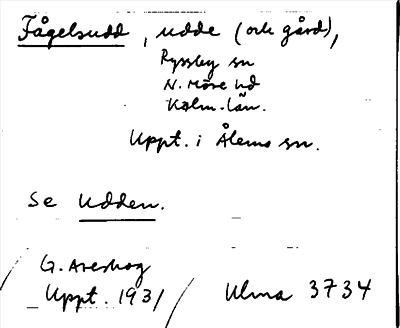 Fågelsudd, udde (och gård),
Ryssby sn
N. Möre hd
Kalm. län.
Uppt. i Ålems sn.
Se Udden.
G. Areskog
Uppt. 1931 / Ulma 3734